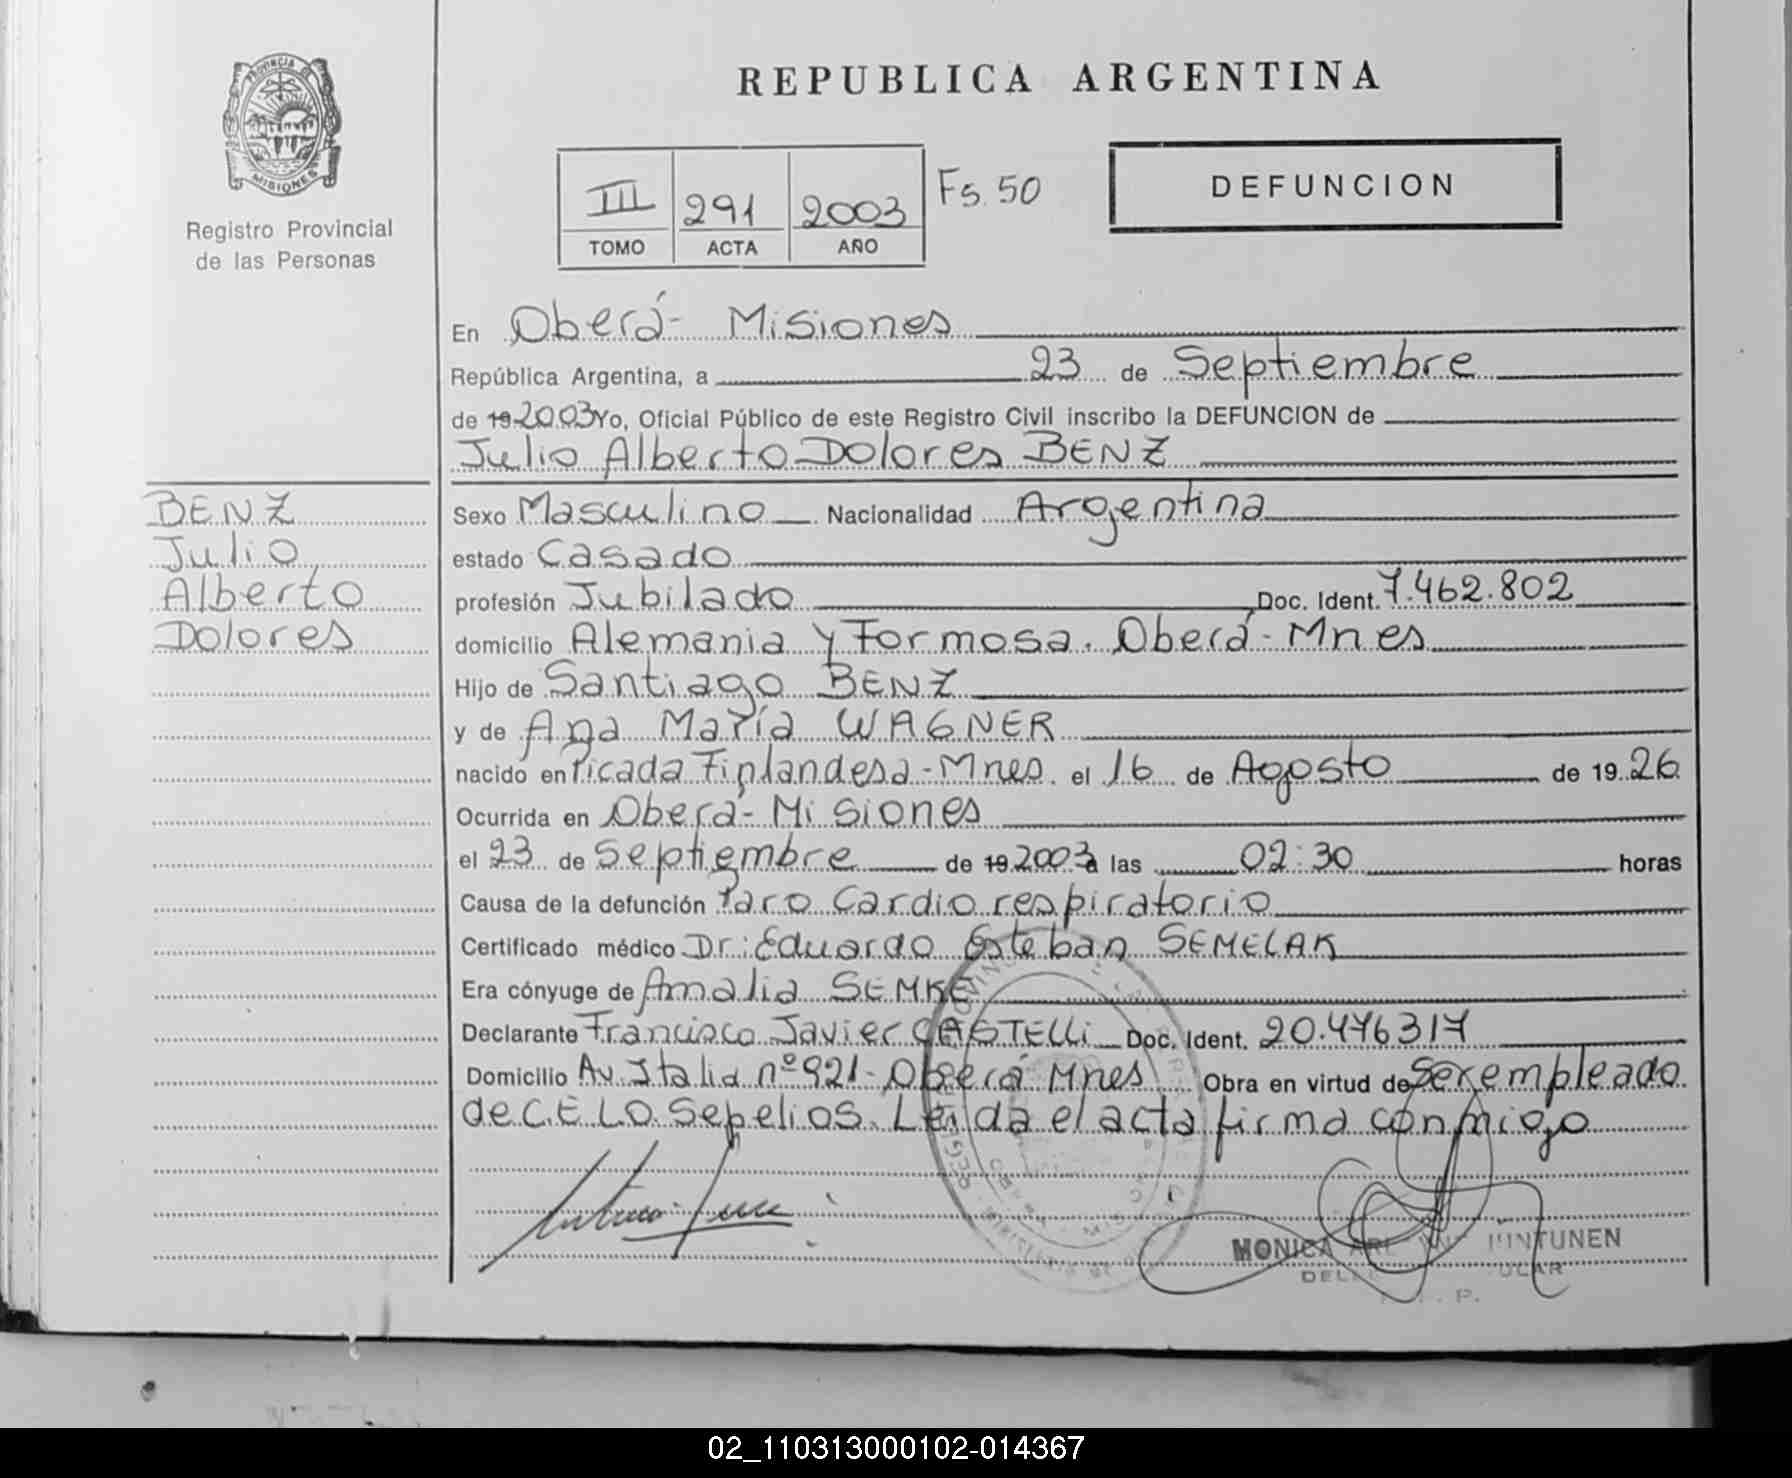 PROVINCIA
MISIONES
Registro Provincial
de las Personas
REPUBLICA ARGENTINA
III 291 2003 Fs. 50
TOMO ACTA AÑO
DEFUNCION
En Oberá - Misiones
República Argentina, a 23 de Septiembre
de 19 2003 Yo, Oficial Público de este Registro Civil inscribo la DEFUNCION de
Julio Alberto Dolores BENZ
BENZ
Julio
Alberto
Dolores
Sexo Masculino Nacionalidad Argentina
estado Casado
profesión Jubilado Doc. Ident. 7.462.802
domicilio Alemania y Formosa. Oberá - Mnes
Hijo de Santiago BENZ
y de Ana María WAGNER
nacido en Picada Finlandesa - Mnes. el 16 de Agosto de 19 26
Ocurrida en Oberá - Misiones
el 23 de Septiembre de 19 2003 a las 02:30 horas
Causa de la defunción Paro Cardio respiratorio
Certificado médico Dr: Eduardo Esteban SEMELAK
Era cónyuge de Amalia SEMKE
Declarante Francisco Javier CASTELLi Doc. Ident. 20.476317
Domicilio Av. Italia nº 921 - Oberá Mnes Obra en virtud de Ser empleado
de C.E.L.O. Sepelios. Leída el acta firma conmigo
MONICA
02_110313000102-014367